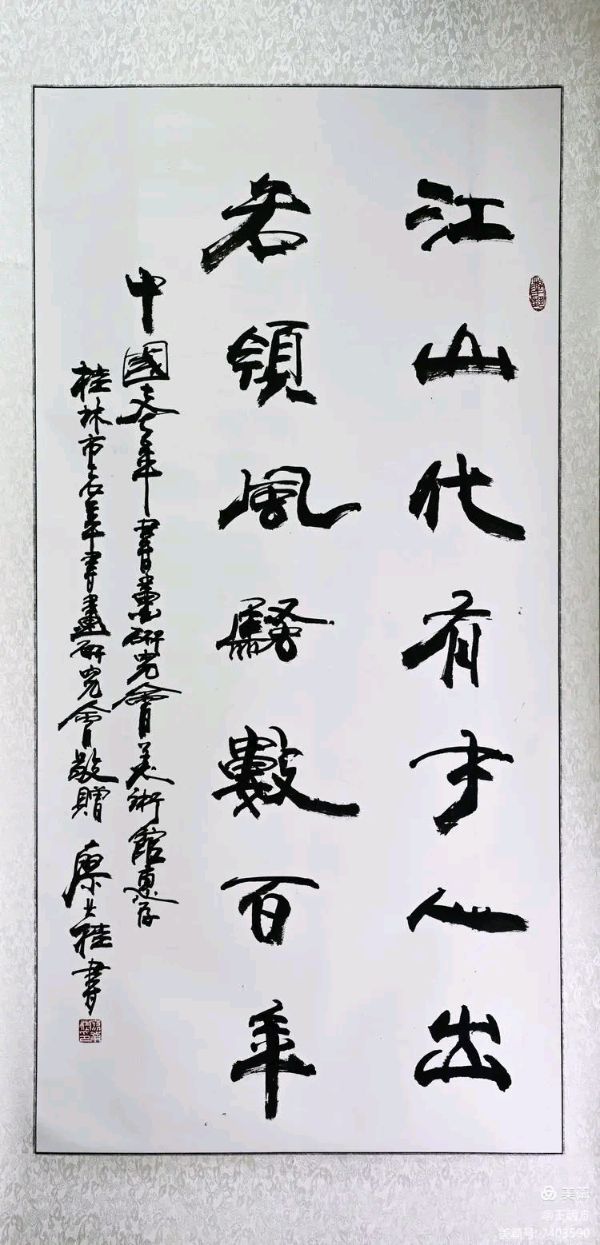 江山代有才人出
各領風騷數百年
中國老年書畫研究會美術館惠存
桂林市老年書畫研究會敬贈
桂書
美篇
美篇号:7403590